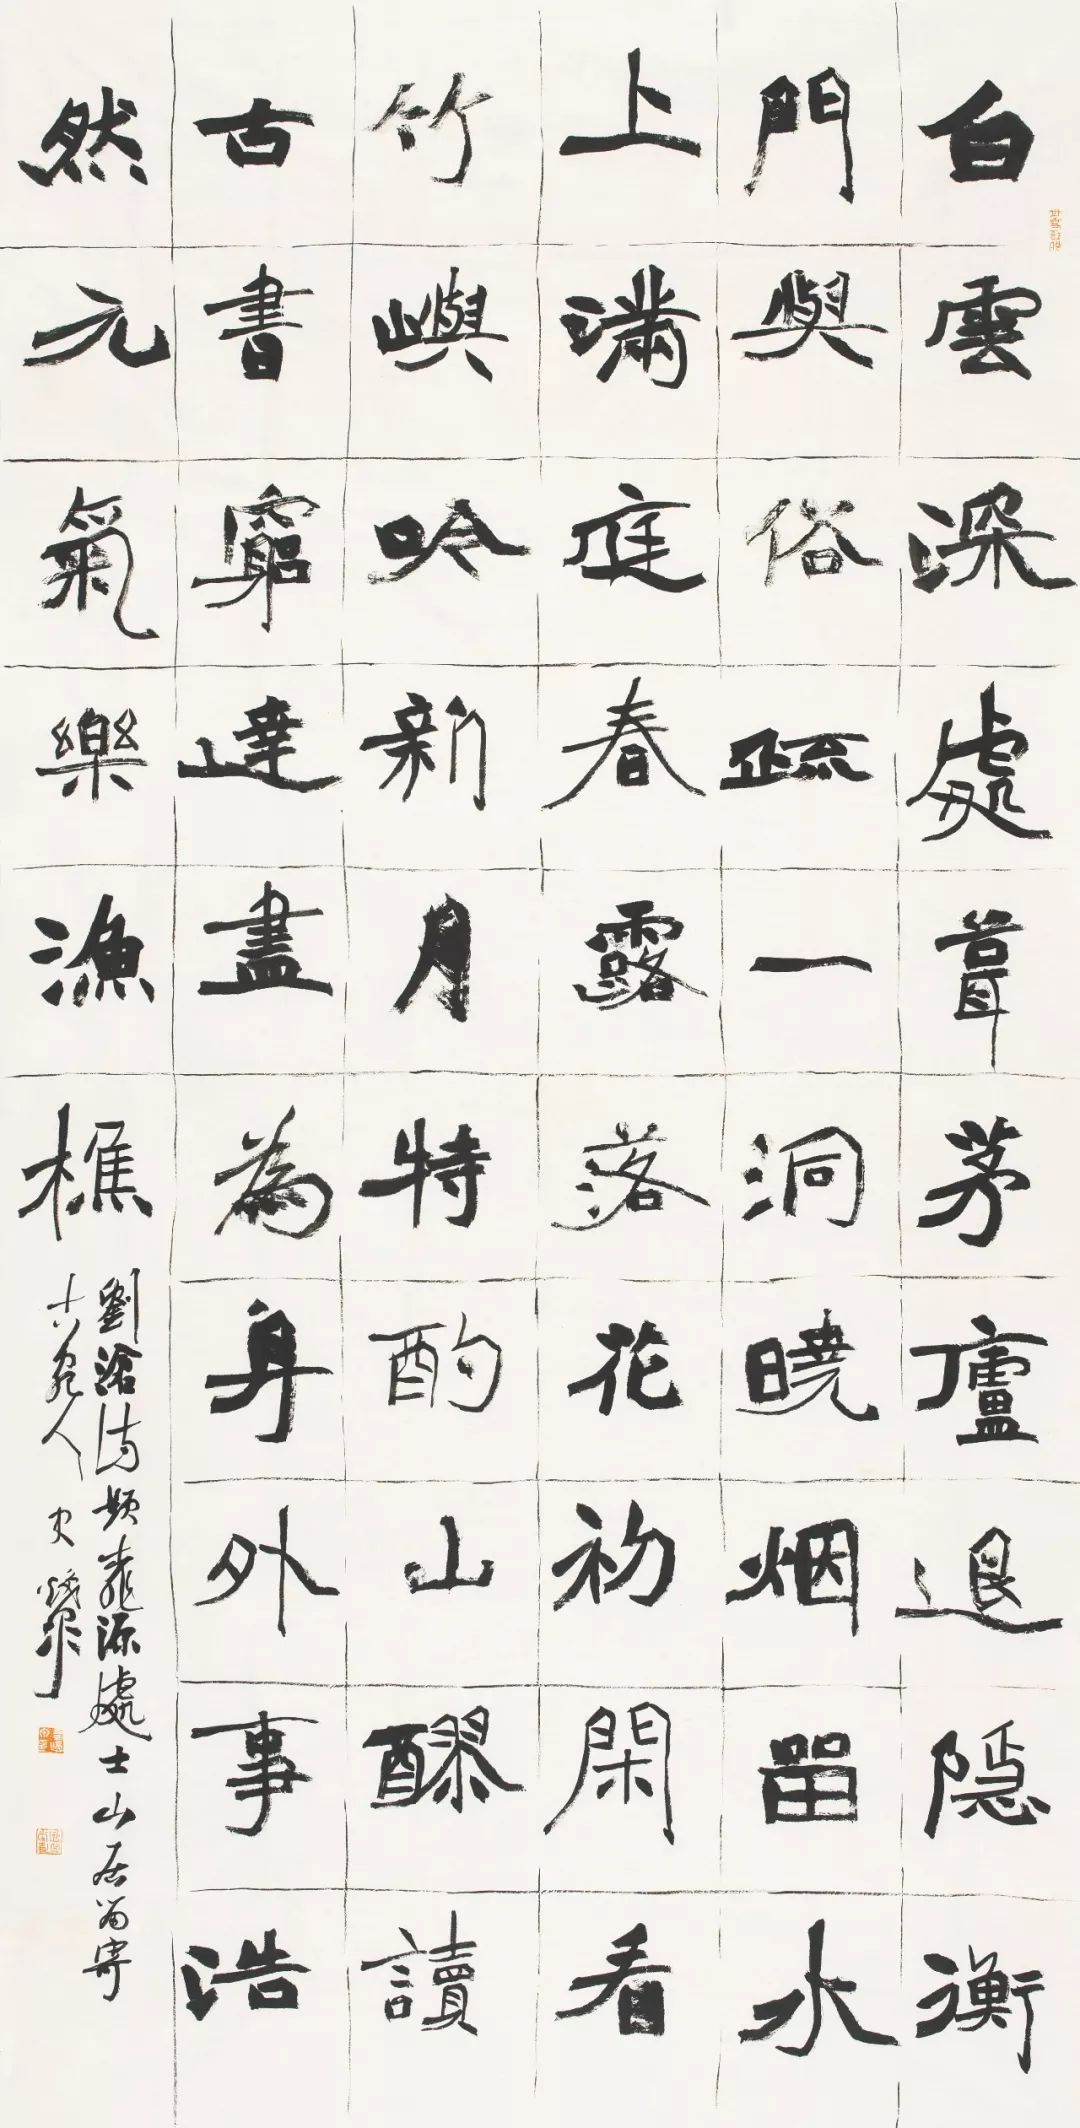 白雲深處葺茅廬退隱衡
門與俗疏一洞曉烟畱水
上滿庭春露落花初閑看
竹嶼吟新月特酌山醪讀
古書窮達盡為身外事浩
然元氣樂漁樵
劉滄詩題桃源處士山居留寄